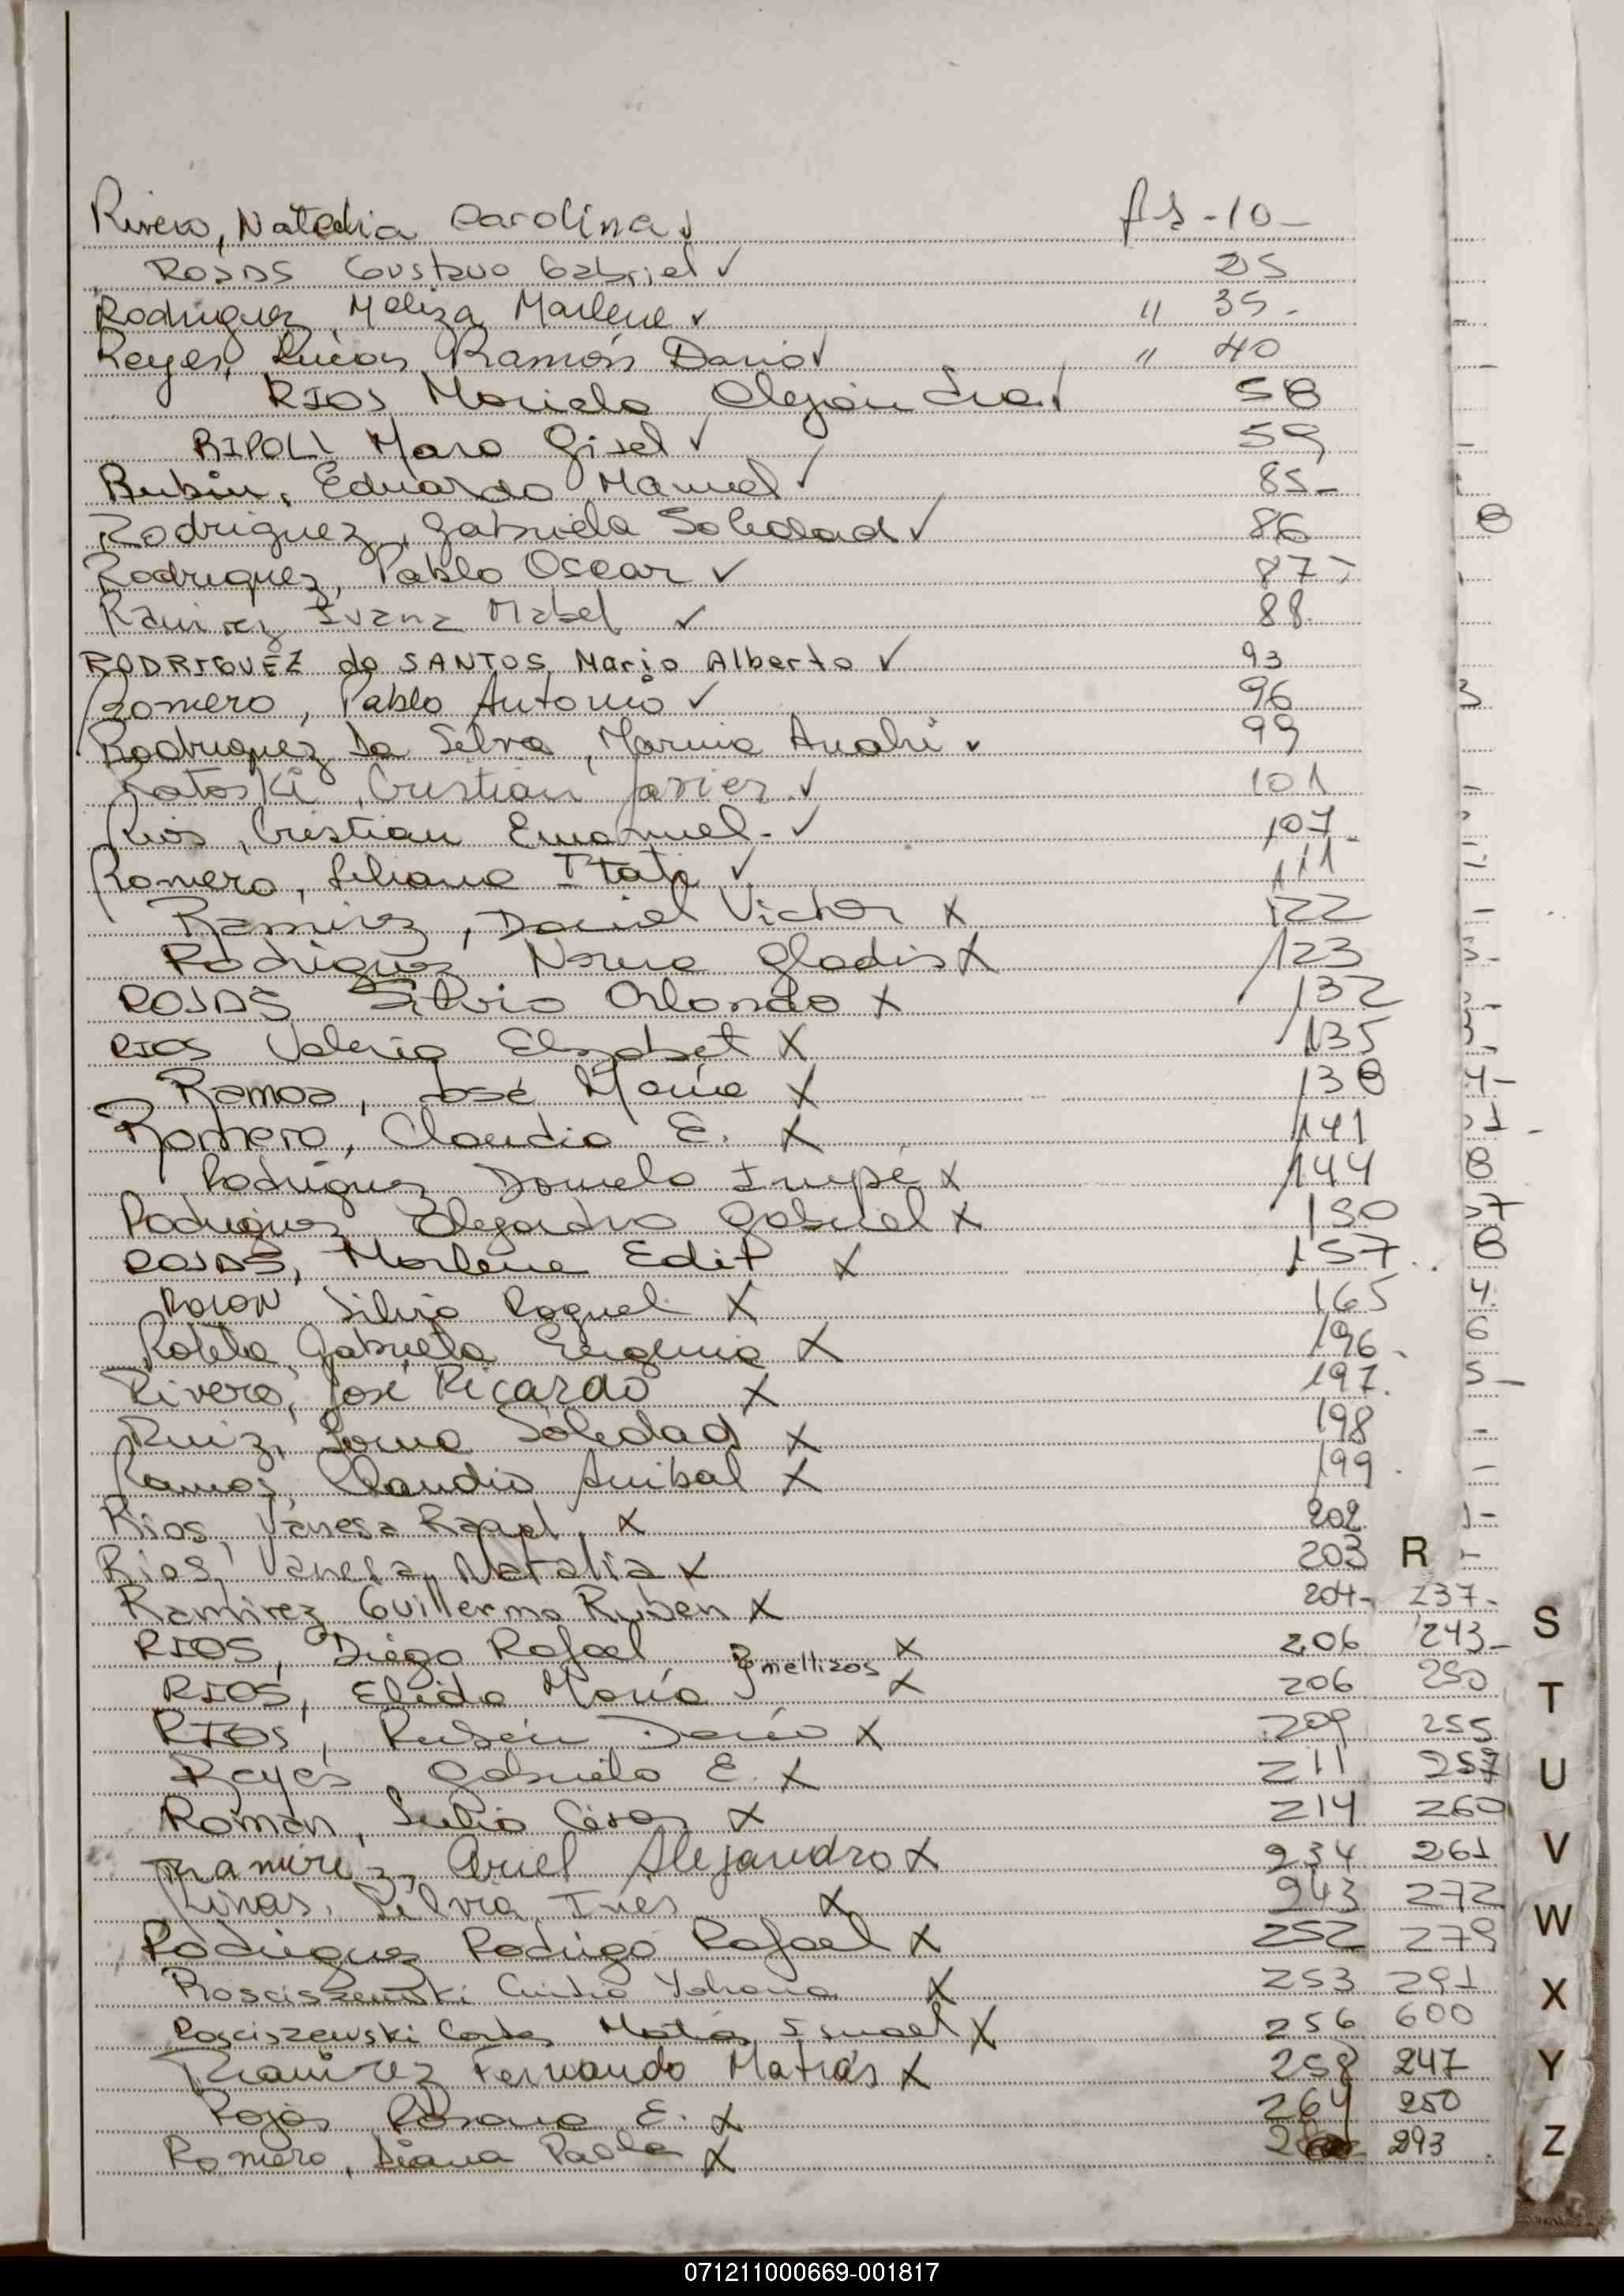 Rivero, Natalia Carolina ✓ fs - 10 -
ROJAS Gustavo Gabriel ✓ 25
Rodriguez, Meliza Marlene ✓ " 35 -
Reyes, Lucas Ramón Dario ✓ " 40 -
RIOS Mariela Alejandra ✓ 58
RIPOLL Mara Gisel ✓ 59 -
Rubin, Eduardo Manuel ✓ 85 -
Rodriguez, Gabriela Soledad ✓ 86 8
Rodriguez, Pablo Oscar ✓ 87
Ramirez Ivana Mabel ✓ 88
RODRIGUEZ do SANTOS Mario Alberto ✓ 93
Romero, Pablo Antonio ✓ 96 3
Rodriguez Da Silva, Marina Anahi ✓ 99
Ratoski, Cristian Javier ✓ 101 -
Rios, Cristian Emanuel - ✓ 107 -
Romero, Liliana Itati ✓ 111
Ramirez, Daniel Victor X 122 -
Rodriguez Norma Gladis X 123 3 -
ROJAS Silvio Orlando X 132
RIOS Valeria Elizabet X 135
Ramos, José María X 138 4 -
Romero, Claudio E. X 141 1 -
Rodriguez Daniela Irupé X 144 8
Rodriguez Alejandro Gabriel X 150 7
ROJAS, Marlene Edit X 157 8
ROLON Silvia Raquel X 165 4.
Gabriela Eugenia X 196 - 6
Rivero, José Ricardo X 197. 5 -
Ruiz, Lorna Soledad X 198 -
Ramos, Claudio Anibal X 199 - -
Rios, Vanesa Raquel X 202 1 -
Rios, Vanesa Natalia X 203 R -
Ramirez Guillermo Ruben X 204 - 237 -
S
RIOS, Diego Rafael X 206 243 -
} mellizos
RIOS, Elida María X 206 250
T
RIOS, Rubén Darío X 209 255
Reyes, Gabriela E. X 211 257
U
Roman, Julio César X 214 260
Ramirez, Ariel Alejandro X 234 261
V
Rinas, Silvia Inés X 243 272
W
Rodriguez Rodrigo Rafael X 252 279
Rosciszewski Cintia Yohana X 253 291
X
Rosciszewski Carlos Matías Ismael X 256 600
Ramirez Fernando Matías X 258 247
Y
Rojas Rosana E. X 264 250
Romero, Diana Paola X 293
Z
071211000669-001817